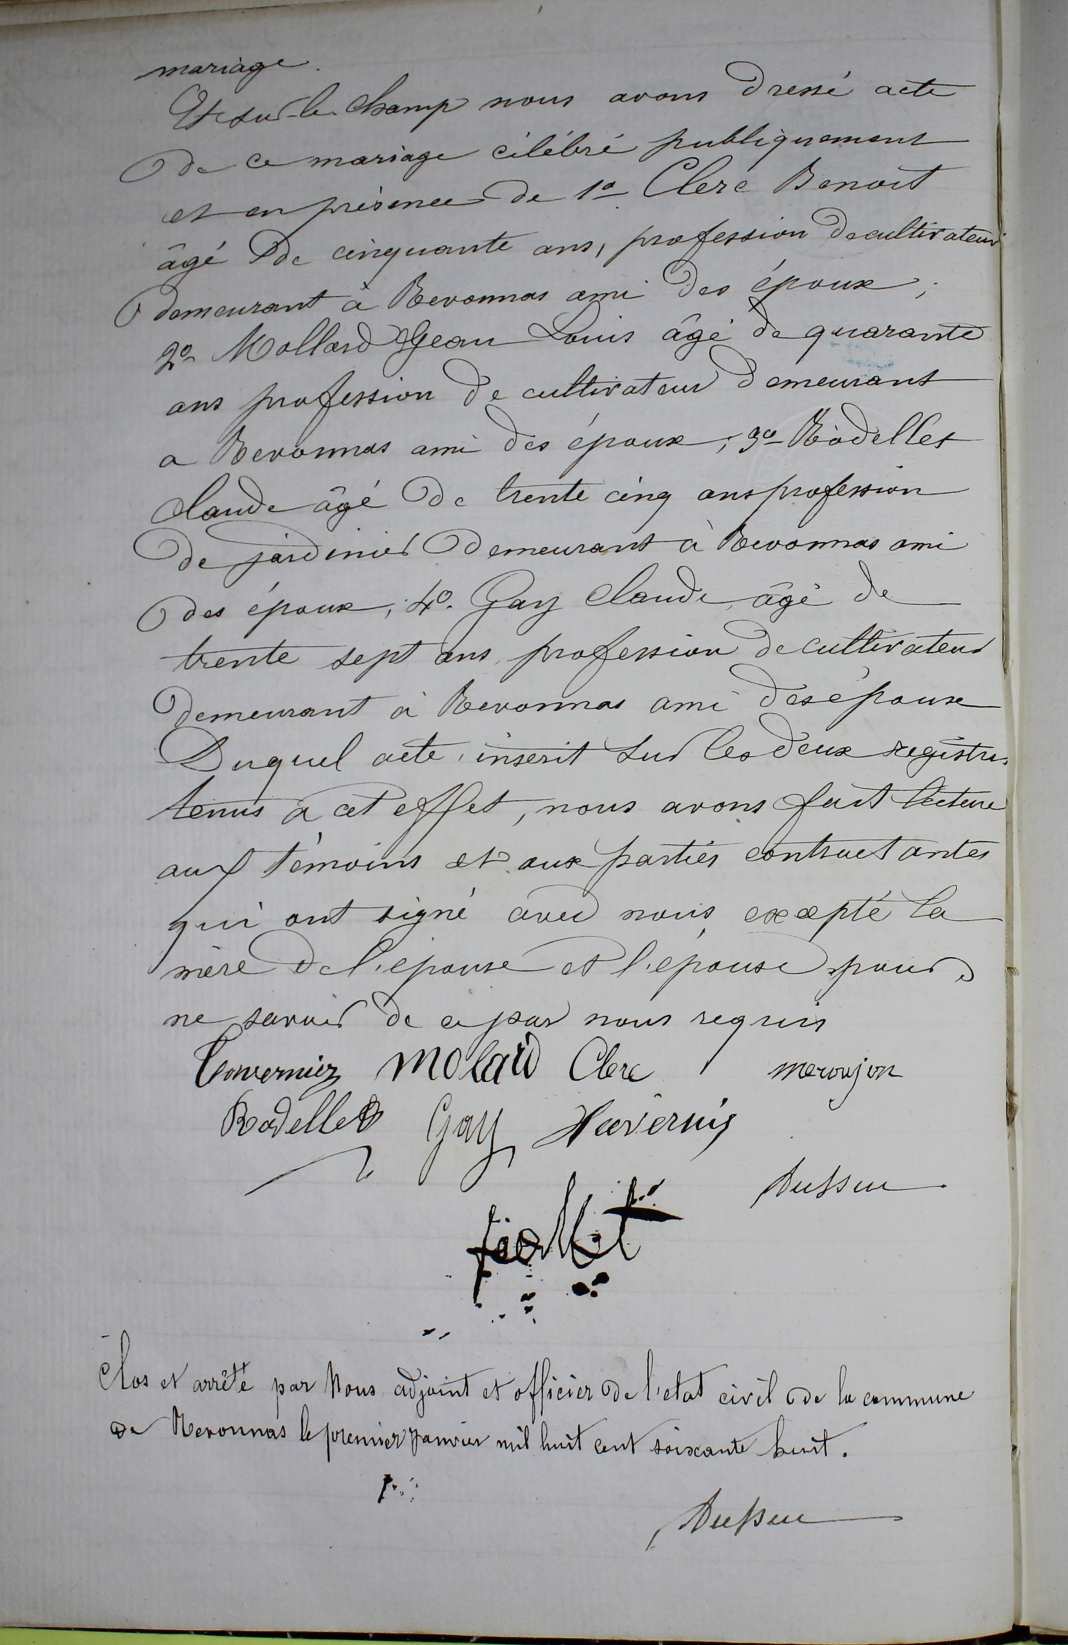 mariage.
Et sur le champ nous avons dressé acte
de ce mariage célébré publiquement
et en présence de 1º Clerc Benoit
âgé de cinquante ans, profession de cultivateur
demeurant à Revonnas ami des époux ;
2º Mollard Jean Louis âgé de quarante
ans profession de cultivateur demeurant
a Revonnas ami des époux ; 3º Rodellet
Claude âgé de trente cinq ans profession
de jardinier demeurant à Revonnas ami
des époux ; 4º Gay Claude âgé de
trente sept ans profession de cultivateur
demeurant à Revonnas ami des époux
Duquel acte, inserit sur les deux registres
tenus à cet effet, nous avons fait lecture
aux témoins et aux parties contractantes
qui ont signé avec nous, excepté la
mère de l'épouse et l'épouse pour
ne savoir de ce par nous requis
Tavernier Molard Clerc
Rodellet Gay
Clos et arrêté par Nous adjoint et officier de l'etat civil de la commune
de Revonnas le premier Janvier mil huit cent soixante huit.